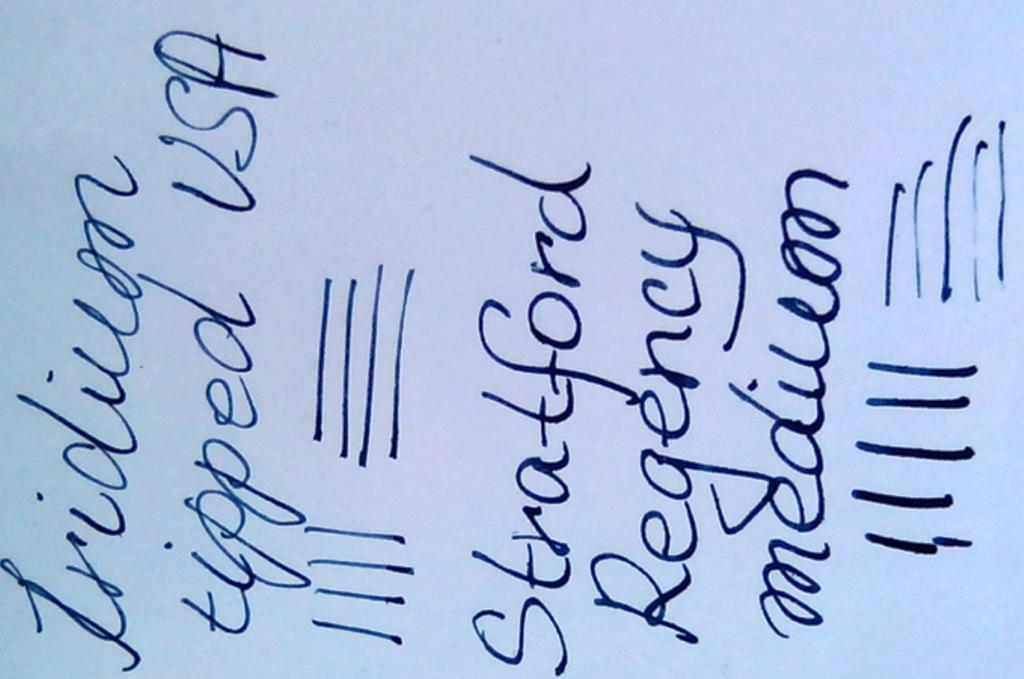 Iridium
tipped USA
Stratford
Regency
medium